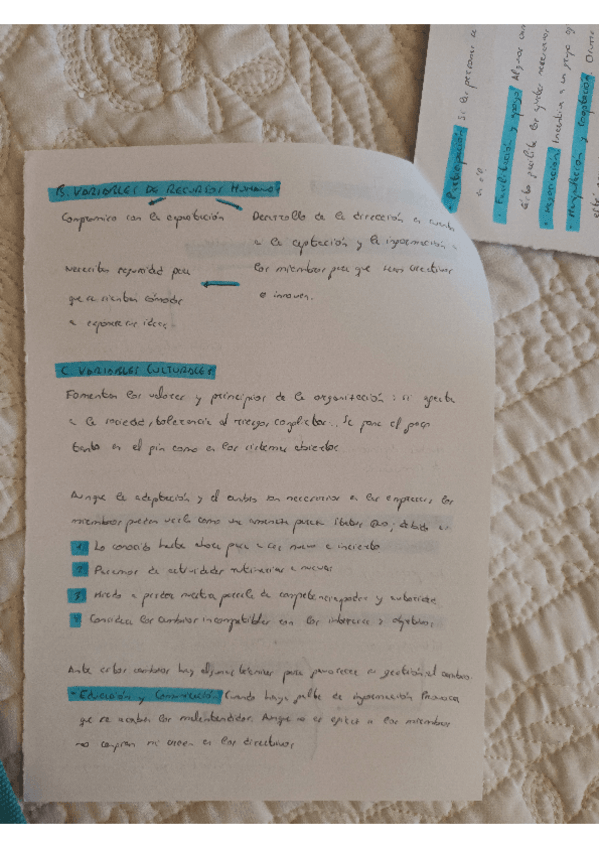 B. VARIABLES DE RECURSOS HUMANOS
Compromiso con la
Desarrollo de la dirección en cuanto
a la captación y la información a
los miembros para que sean creativos
e innoven.
Necesitan seguridad para
que se sientan cómodos
a exponer sus ideas
C. VARIABLES CULTURALES
Fomentan los valores y principios de la organización: si afecta
a la sociedad, tolerancia al riesgo, conflictos... Se pone el foco
tanto en el fin como en los sistemas abiertos
Aunque la adaptación y el cambio son necesarios en las empresas, los
miembros pueden verlo como una amenaza para su debido a:
1) Lo conocido hasta ahora pasa a ser nuevo e incierto
2) Pasamos de actividades rutinarias a nuevas
3) Miedo a perder parcela de competencia, poder y autoridad
4) Considera los cambios incompatibles con los intereses y objetivos
Ante estos cambios hay algunas técnicas para favorecer su gestión del cambio:
- Educación y Comunicación Cuando haya falta de información Provoca
que se acaben los malentendidos. Aunque no es eficaz si los miembros
no confían ni creen en los directivos
· Participación Si las personas
· Facilitación y apoyo Algunas
· Negociación Incentivar a un grupo
· Manipulación y Cooptación